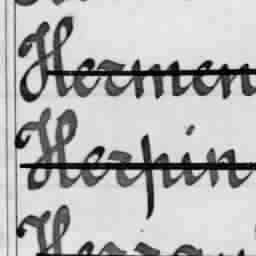 Hermen
Herpin